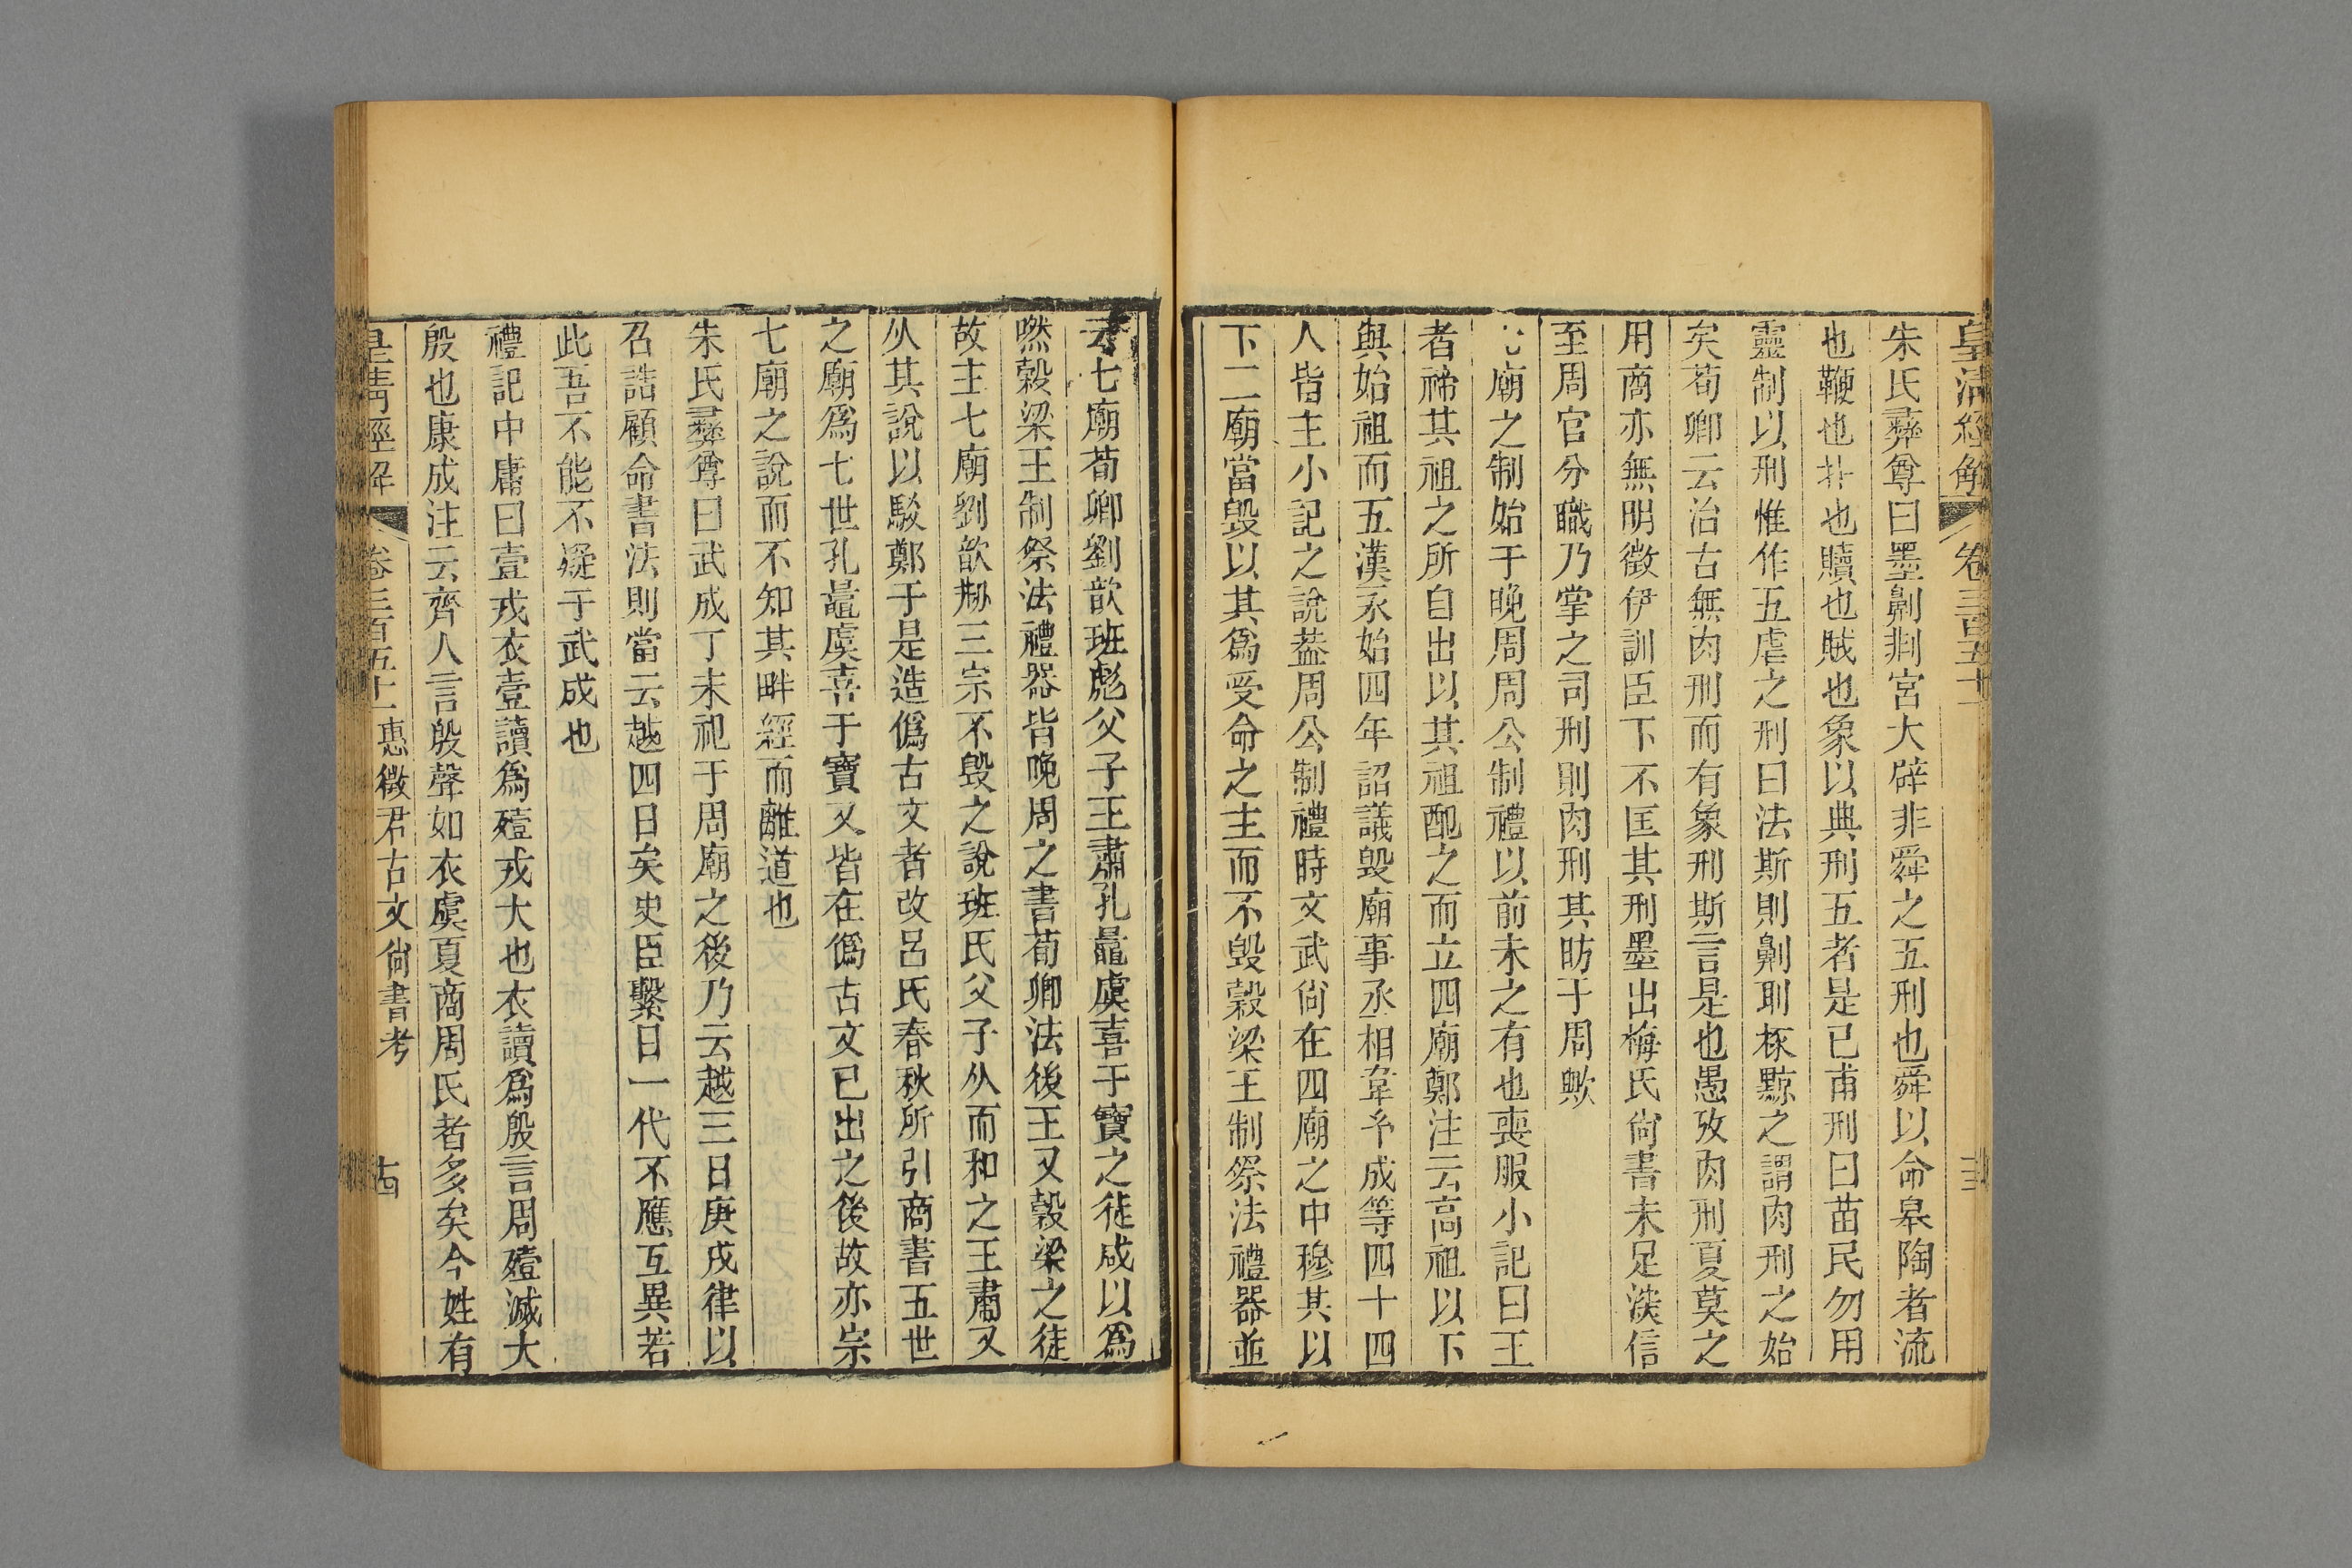 皇清經解 卷三百五十一
朱氏彞尊曰墨劓剕宮大辟非舜之五刑也舜以命皋陶者流
也鞭也扑也贖也賊也象以典刑五者是已甫刑曰苗民勿用
靈制以刑惟作五虐之刑曰法斯則劓刵椓黥之謂肉刑之始
矣荀卿云治古無肉刑而有象刑斯言是也愚攷肉刑夏莫之
用商亦無明徵伊訓臣下不匡其刑墨出梅氏尙書未足淡信
至周官分職乃掌之司刑則肉刑其昉于周歟
七廟之制始于晚周周公制禮以前未之有也喪服小記曰王
者禘其祖之所自出以其祖配之而立四廟鄭注云高祖以下
與始祖而五漢永始四年詔議毀廟事丞相韋予成等四十四
人皆主小記之說葢周公制禮時文武尙在四廟之中穆其以
下二廟當毀以其爲受命之主而不毀穀梁王制祭法禮器並
云七廟荀卿劉歆班彪父子王肅孔鼂虞喜于寶之徒咸以爲
嘫穀梁王制祭法禮器皆晚周之書荀卿法後王又穀梁之徒
故主七廟劉歆剙三宗不毀之說班氏父子从而和之王肅又
从其說以駁鄭于是造僞古文者改呂氏春秋所引商書五世
之廟爲七世孔鼂虞喜于寶又皆在僞古文已出之後故亦宗
七廟之說而不知其畔經而離道也
朱氏彞尊曰武成丁未祀于周廟之後乃云越三日庚戌律以
召誥顧命書法則當云越四日矣史臣繫日一代不應互異若
此吾不能不疑于武成也
禮記中庸曰壹戎衣壹讀爲殪戎大也衣讀爲殷言周殪滅大
殷也康成注云齊人言殷聲如衣虞夏商周氏者多矣今姓有
皇清經解 卷三百五十一惠徵君古文尙書考 十四